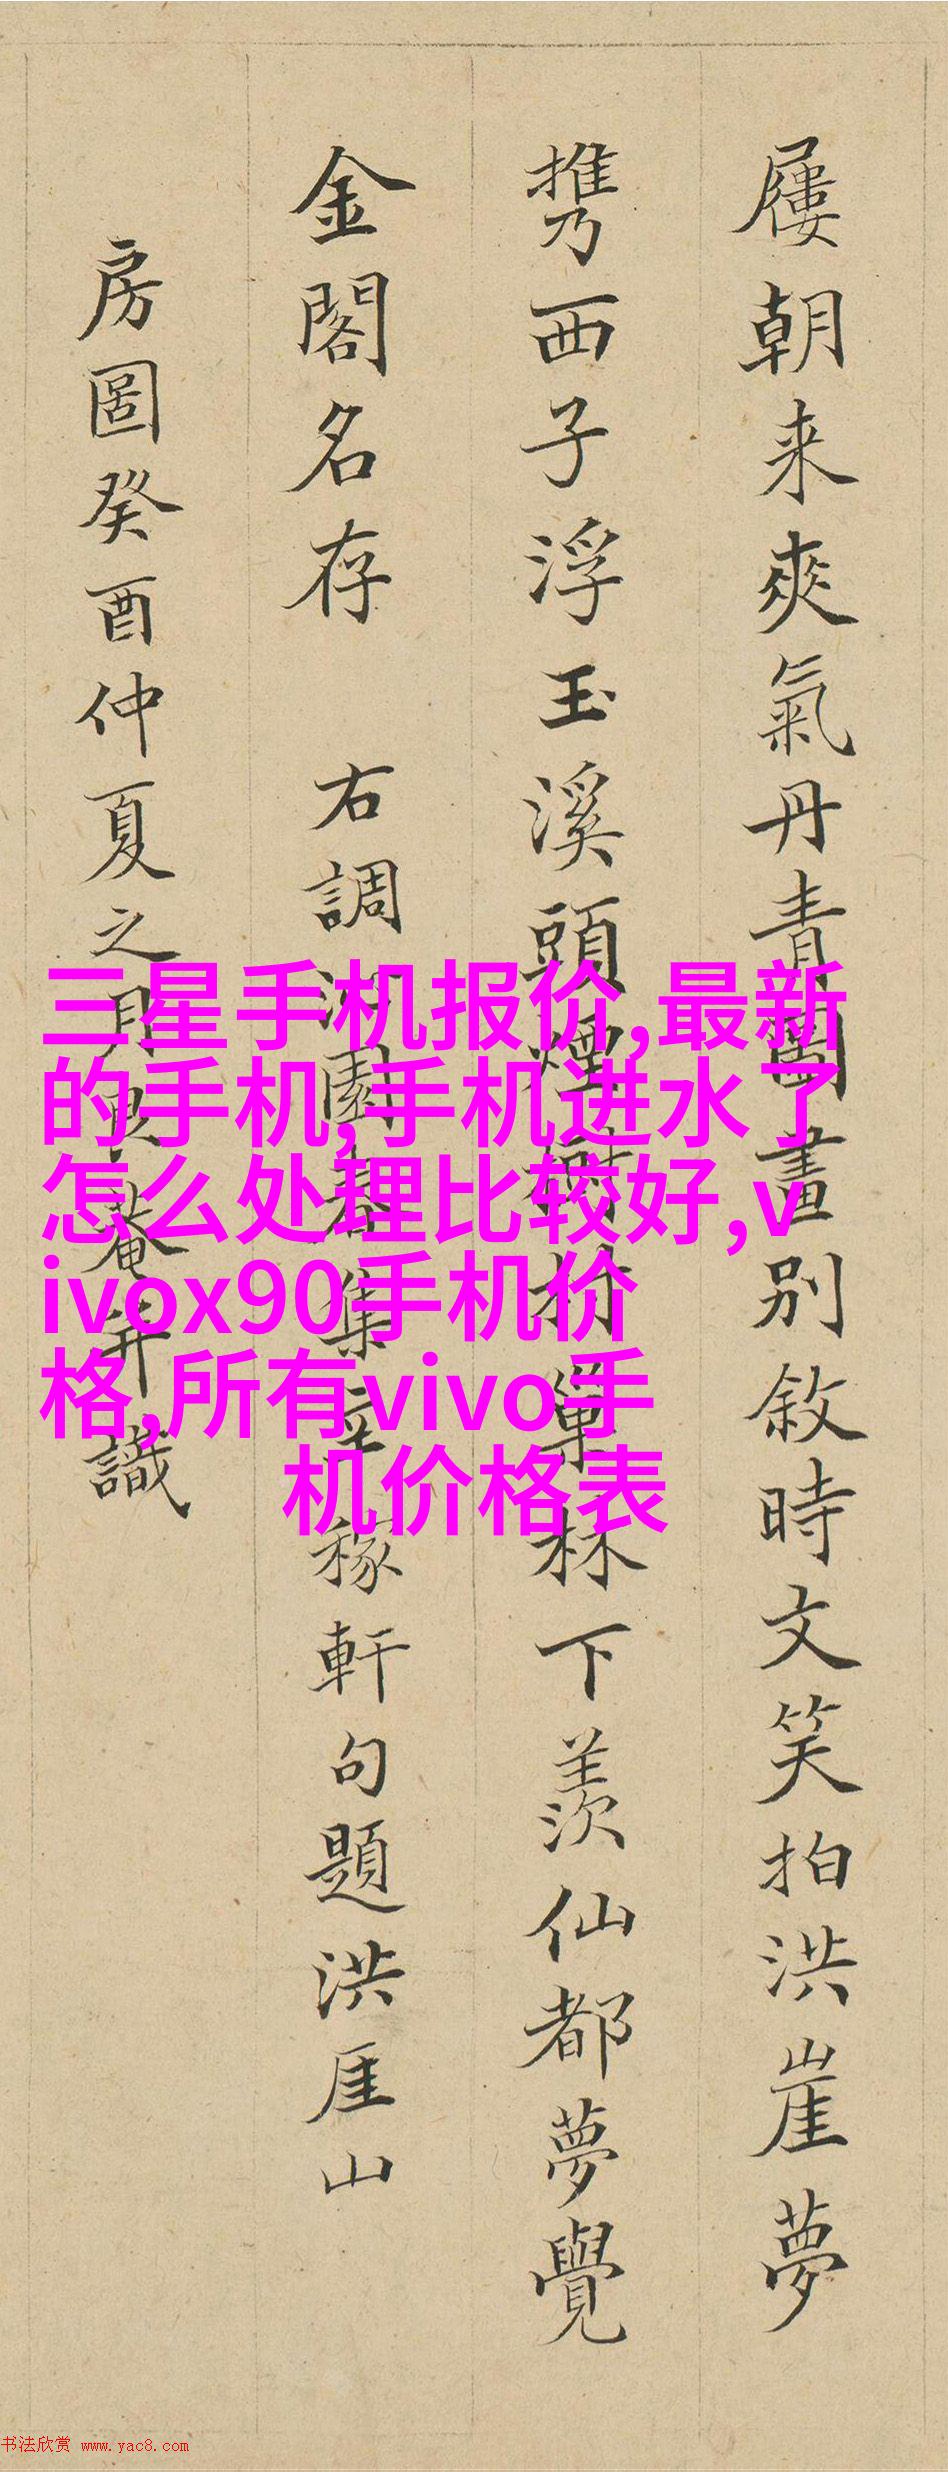 屢朝来爽氣丹青圖畫別敘時文笑拍洪崖夢
携西子浮玉溪頭煙樹村巢林下羨仙都夢覺
金閣名存 右調沁園春集辛稼軒句題洪厓山
房圖癸酉仲夏之月艮菴并識
三星手机报价,最新
的手机,手机进水了
怎么处理比较好,v
ivox90手机价
格,所有vivo手
机价格表
书法欣赏 www.yac8.com